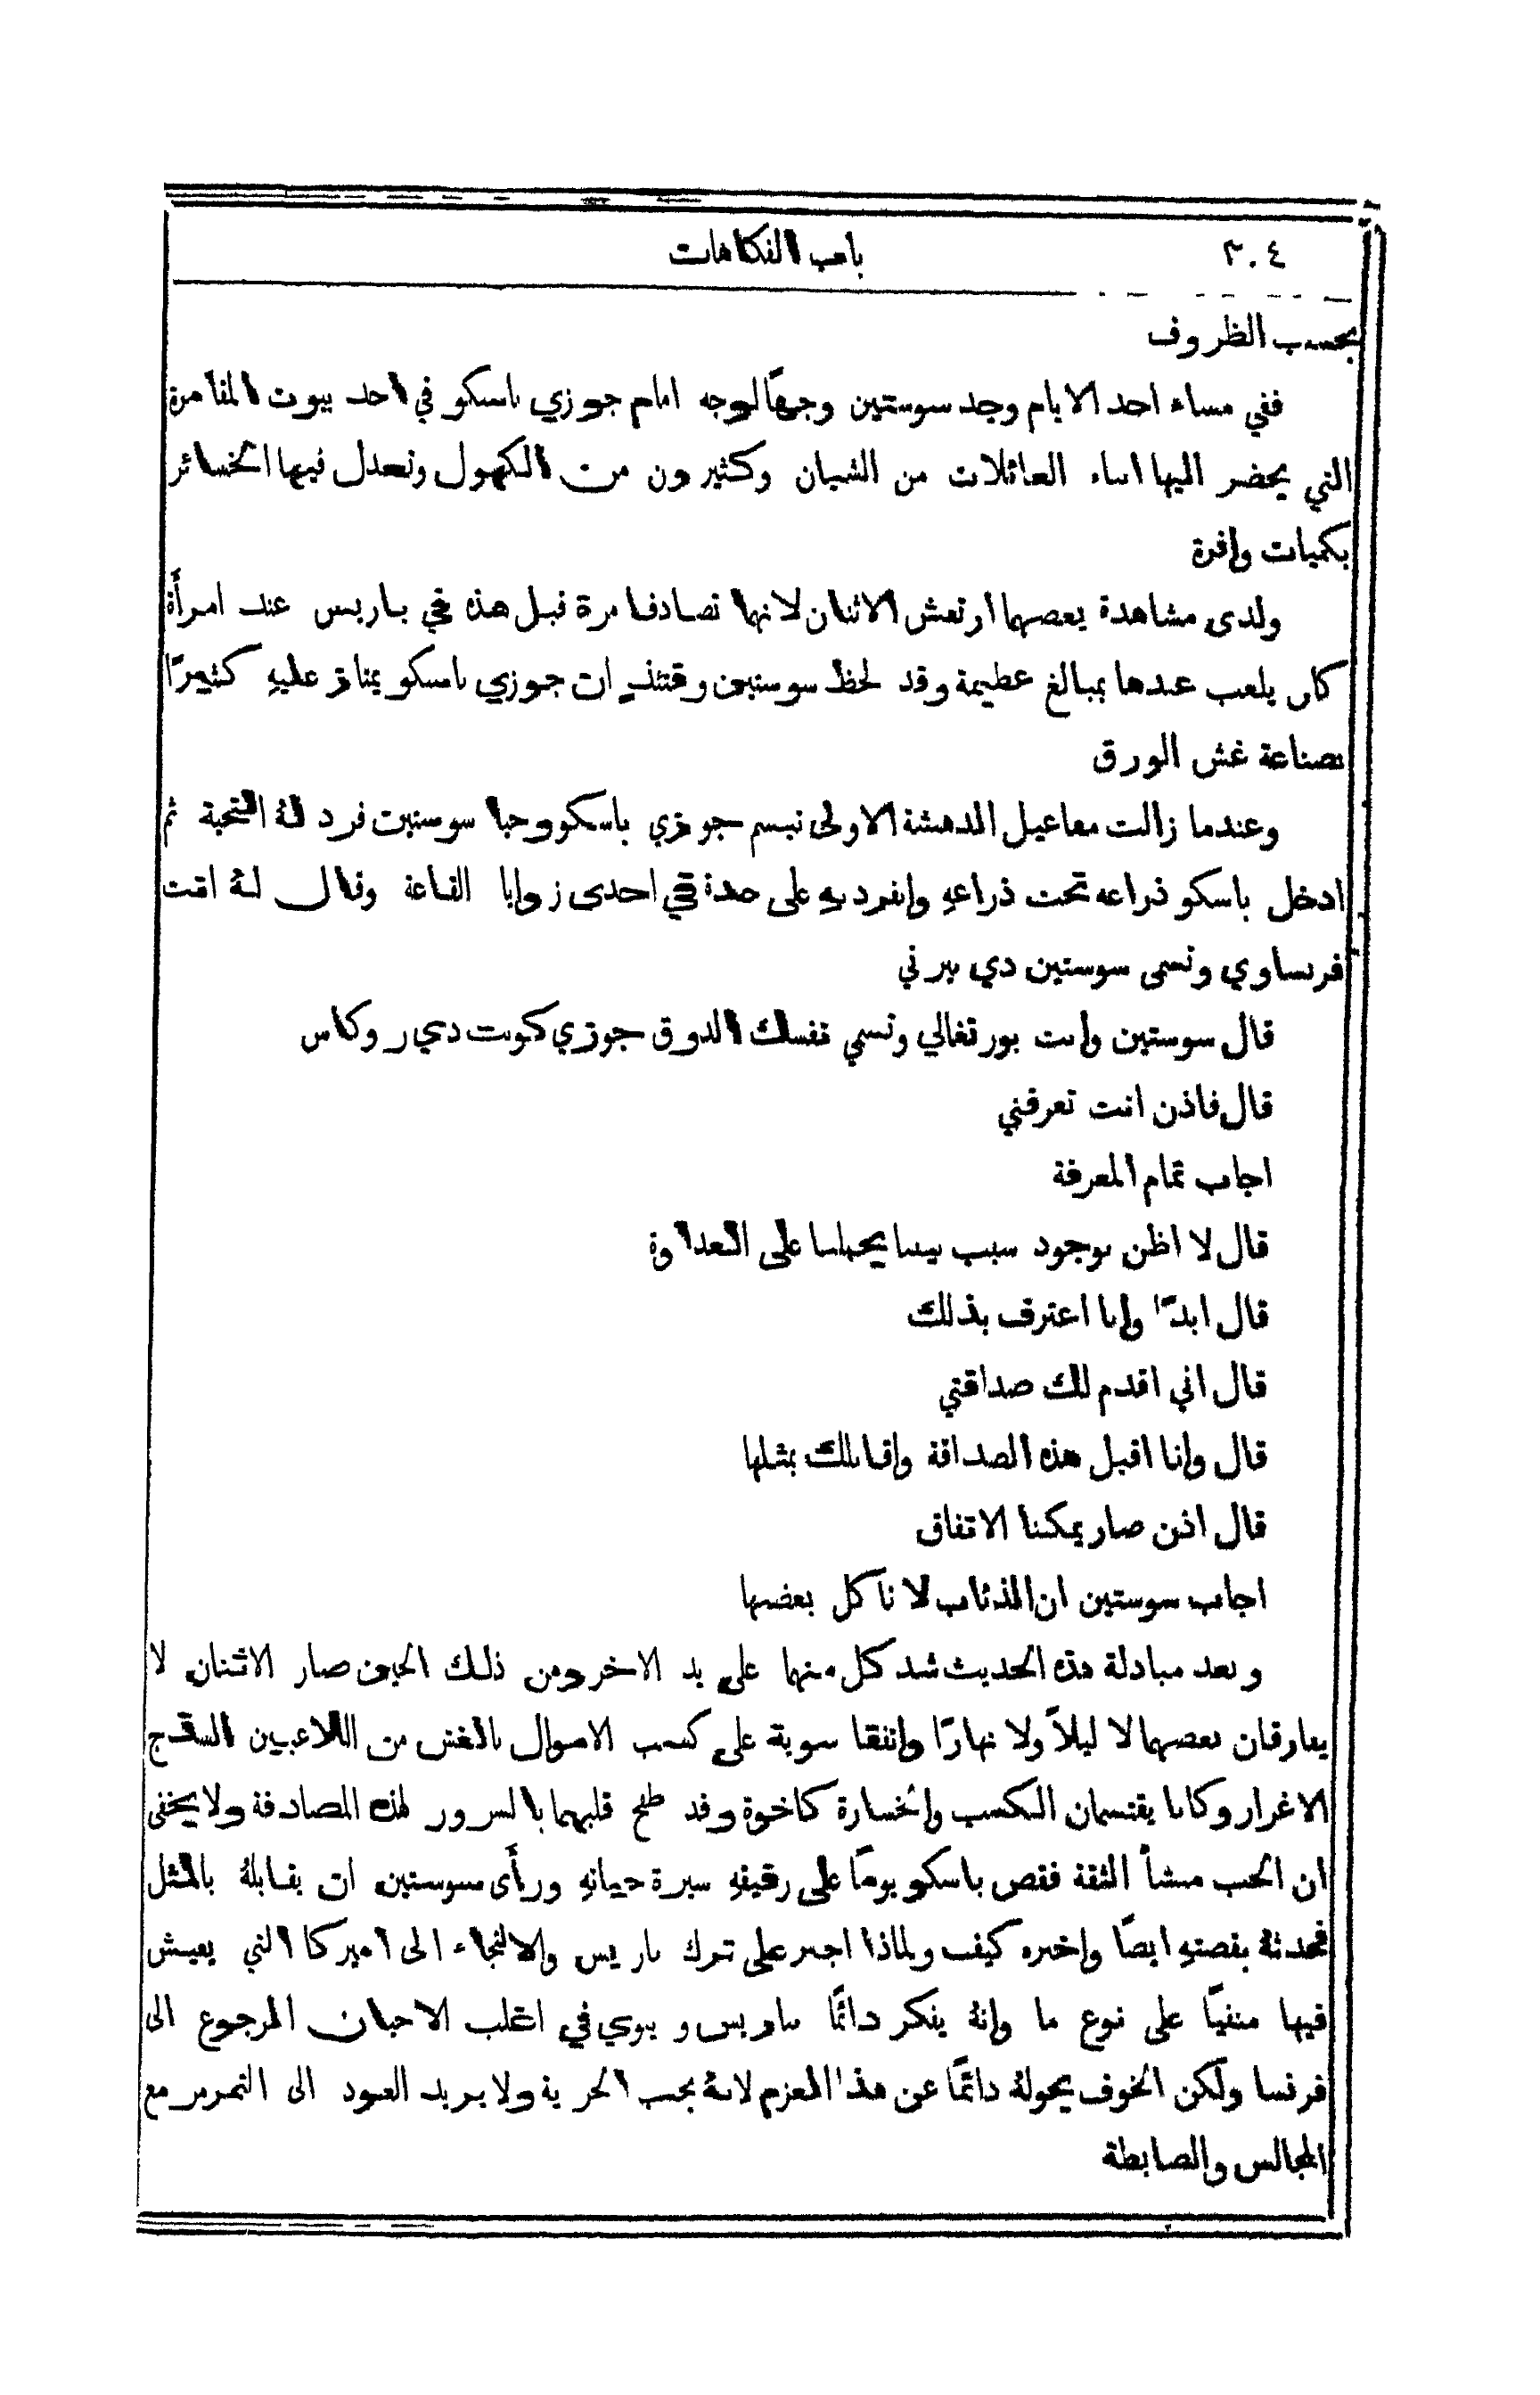 ٣٠٤ باب الفكاهات
بحسب الظروف
ففي مساء احد الايام وجد سوستين وجهًا لوجه امام جوزي باسكو في احد بيوت المقامرة
التي يحضر اليها ابناء العائلات من الشبان وكثيرون من الكهول وتعدل فيها الخسائر
بكميات وافرة
ولدى مشاهدة بعضهما ارتعش الاثنان لانهما تصادفا مرة قبل هذه في باريس عند امرأة
كان يلعب عندها بمبالغ عظيمة وقد لحظ سوستين وقتئذ ان جوزي باسكو يمتاز عليهِ كثيرًا
بصناعة غش الورق
وعندما زالت مفاعيل الدهشة الاولى تبسم جوزي باسكو وحيا سوستين فرد لهُ التحية ثم
ادخل باسكو ذراعه تحت ذراعهِ وانفرد بهِ على حدة في احدى زوايا القاعة وقال لهُ انت
فرنساوي وتسمى سوستين دي بيرني
قال سوستين وانت بورتغالي وتسمي نفسك الدوق جوزي كونت دي روكاس
قال فاذن انت تعرفني
اجاب تمام المعرفة
قال لا اظن بوجود سبب بيننا يحملنا على العداوة
قال ابدًا وانا اعترف بذلك
قال اني اقدم لك صداقتي
قال وانا اقبل هذه الصداقة واقابلك بمثلها
قال اذن صار يمكنا الاتفاق
اجاب سوستين ان الذئاب لا تاكل بعضها
وبعد مبادلة هذه الحديث شد كل منهما على يد الاخر ومن ذلك الحين صار الاثنان لا
يفارقان بعضهما لا ليلاً ولا نهارًا واتفقا سوية على كسب الاموال بالغش من اللاعبين السذج
الاغرار وكانا يقتسمان الكسب والخسارة كاخوة وقد طفح قلبهما بالسرور لهذه المصادفة ولا يخفى
ان الحب منشأ الثقة فقص باسكو يومًا على رفيقهِ سيرة حياتهِ ورأى سوستين ان يقابلهُ بالمثل
فحدثهُ بقصتهِ ايضًا واخبره كيف ولماذا اجبر على ترك باريس والالتجاء الى اميركا التي يعيش
فيها منفيًا على نوع ما وانهُ يفكر دائمًا بباريس وينوي في اغلب الاحيان الرجوع الى
فرنسا ولكن الخوف يحولهُ دائمًا عن هذا العزم لانهُ يحب الحرية ولا يريد العود الى التمرمر مع
المجالس والضابطة